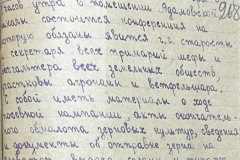 часов утра в помещении Адамовской
школы состоится конференция на
которую обязаны явится г.г. старосты
секретаря всех примарий шефы и
бухгалтера всех земельных обществ,
участковы агрономы и ветфельдшера.
С собой иметь материалы о ходе
посевной кампании, акты окончатель-
ного обмолота зерновых культур, сведения
и документы об отправке зерна на
268